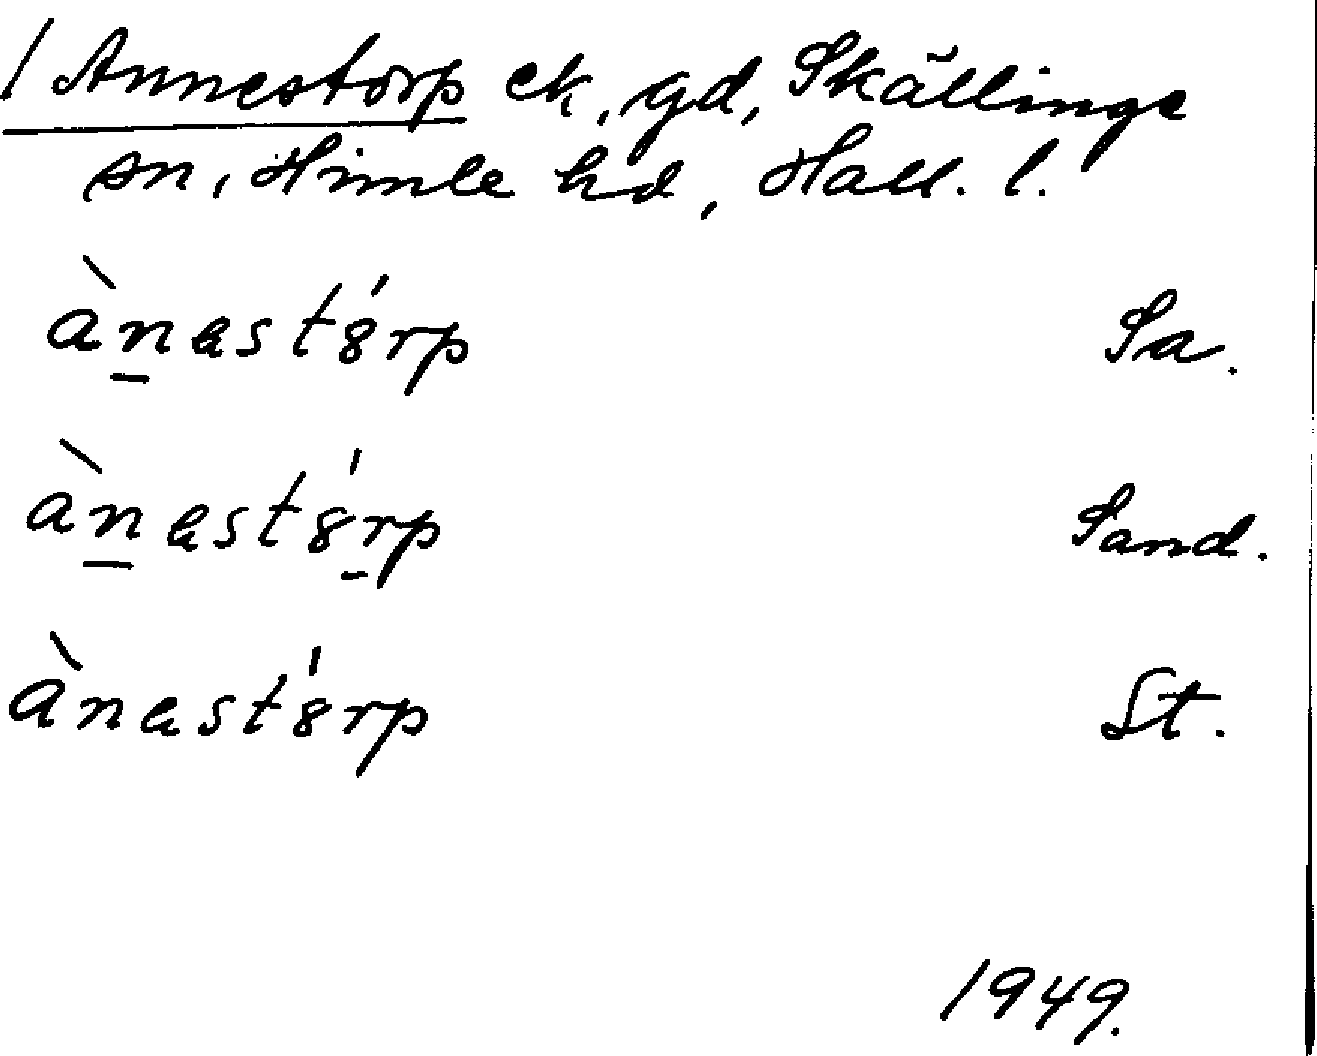 / Annestorp ek, gd, Skällinge
sn, Himle hd, Hall. l.
ànɐstȣ́rp Sa.
ànɐstȣ́rp Sand.
ànɐstȣ́rp St.
1949.